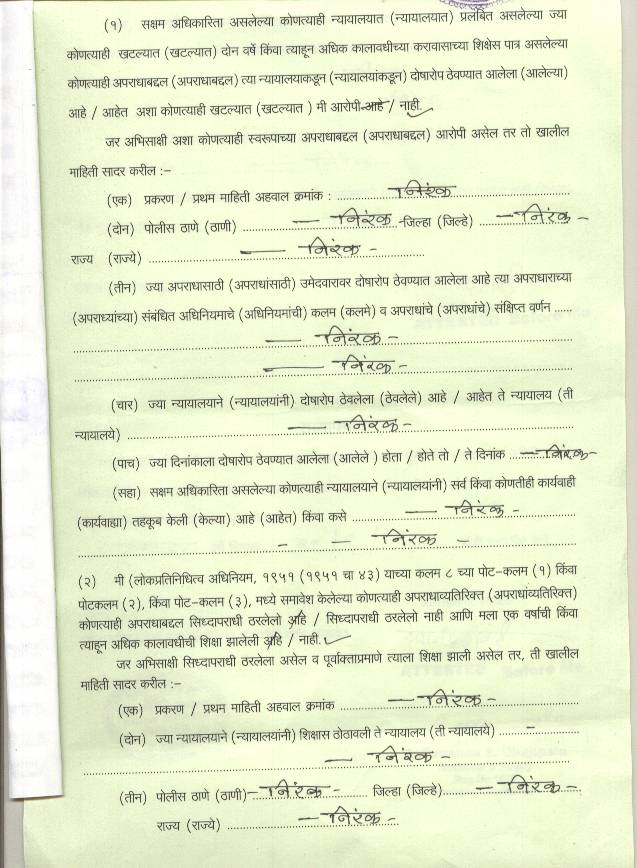 (१) सक्षम अधिकारिता असलेल्या कोणत्याही न्यायालयात (न्यायालयात) प्रलंबित असलेल्या ज्या
कोणत्याही खटल्यात (खटल्यात) दोन वर्षे किंवा त्याहून अधिक कालावधीच्या करावासाच्या शिक्षेस पात्र असलेल्या
कोणत्याही अपराधाबद्दल (अपराधाबद्दल) त्या न्यायालयाकडून (न्यायालयांकडून) दोषारोप ठेवण्यात आलेला (आलेल्या)
आहे / आहेत अशा कोणत्याही खटल्यात (खटल्यात ) मी आरोपी आहे / नाही.
जर अभिसाक्षी अशा कोणत्याही स्वरूपाच्या अपराधाबद्दल (अपराधाबद्दल) आरोपी असेल तर तो खालील
माहिती सादर करील :-
(एक) प्रकरण / प्रथम माहिती अहवाल क्रमांक : निरंक
(दोन) पोलीस ठाणे (ठाणी) — निरंक - जिल्हा (जिल्हे) — निरंक -
राज्य (राज्ये) — निरंक -
(तीन) ज्या अपराधासाठी (अपराधांसाठी) उमेदवारावर दोषारोप ठेवण्यात आलेला आहे त्या अपराधाराच्या
(अपराध्यांच्या) संबंधित अधिनियमाचे (अधिनियमांची) कलम (कलमे) व अपराधांचे (अपराधांचे) संक्षिप्त वर्णन ......
— निरंक -
— निरंक -
(चार) ज्या न्यायालयाने (न्यायालयांनी) दोषारोप ठेवलेला (ठेवलेले) आहे / आहेत ते न्यायालय (ती
न्यायालये) — निरंक -
(पाच) ज्या दिनांकाला दोषारोप ठेवण्यात आलेला (आलेले ) होता / होते तो / ते दिनांक — निरंक -
(सहा) सक्षम अधिकारिता असलेल्या कोणत्याही न्यायालयाने (न्यायालयांनी) सर्व किंवा कोणतीही कार्यवाही
(कार्यवाह्या) तहकूब केली (केल्या) आहे (आहेत) किंवा कसे — निरंक -
- — निरंक -
(२) मी (लोकप्रतिनिधित्व अधिनियम, १९५१ (१९५१ चा ४३) याच्या कलम ८ च्या पोट-कलम (१) किंवा
पोटकलम (२), किंवा पोट-कलम (३), मध्ये समावेश केलेल्या कोणत्याही अपराधाव्यतिरिक्त (अपराधांव्यतिरिक्त)
कोणत्याही अपराधाबद्दल सिध्दापराधी ठरलेलो आहे / सिध्दापराधी ठरलेलो नाही आणि मला एक वर्षाची किंवा
त्याहून अधिक कालावधीची शिक्षा झालेली आहे / नाही.
जर अभिसाक्षी सिध्दापराधी ठरलेला असेल व पूर्वाक्ताप्रमाणे त्याला शिक्षा झाली असेल तर, ती खालील
माहिती सादर करील :-
(एक) प्रकरण / प्रथम माहिती अहवाल क्रमांक — निरंक -
(दोन) ज्या न्यायालयाने (न्यायालयांनी) शिक्षास ठोठावली ते न्यायालय (ती न्यायालये) -
— निरंक -
(तीन) पोलीस ठाणे (ठाणी) — निरंक - जिल्हा (जिल्हे) — निरंक -
राज्य (राज्ये) — निरंक -